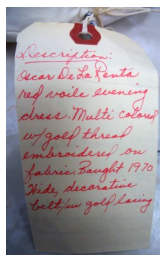 Description:
Oscar De La Renta
red voile evening
dress. Multi colored
w/gold thread
embroidered on
fabric Bought 1970
Wide, decorative
belt/w gold lacing